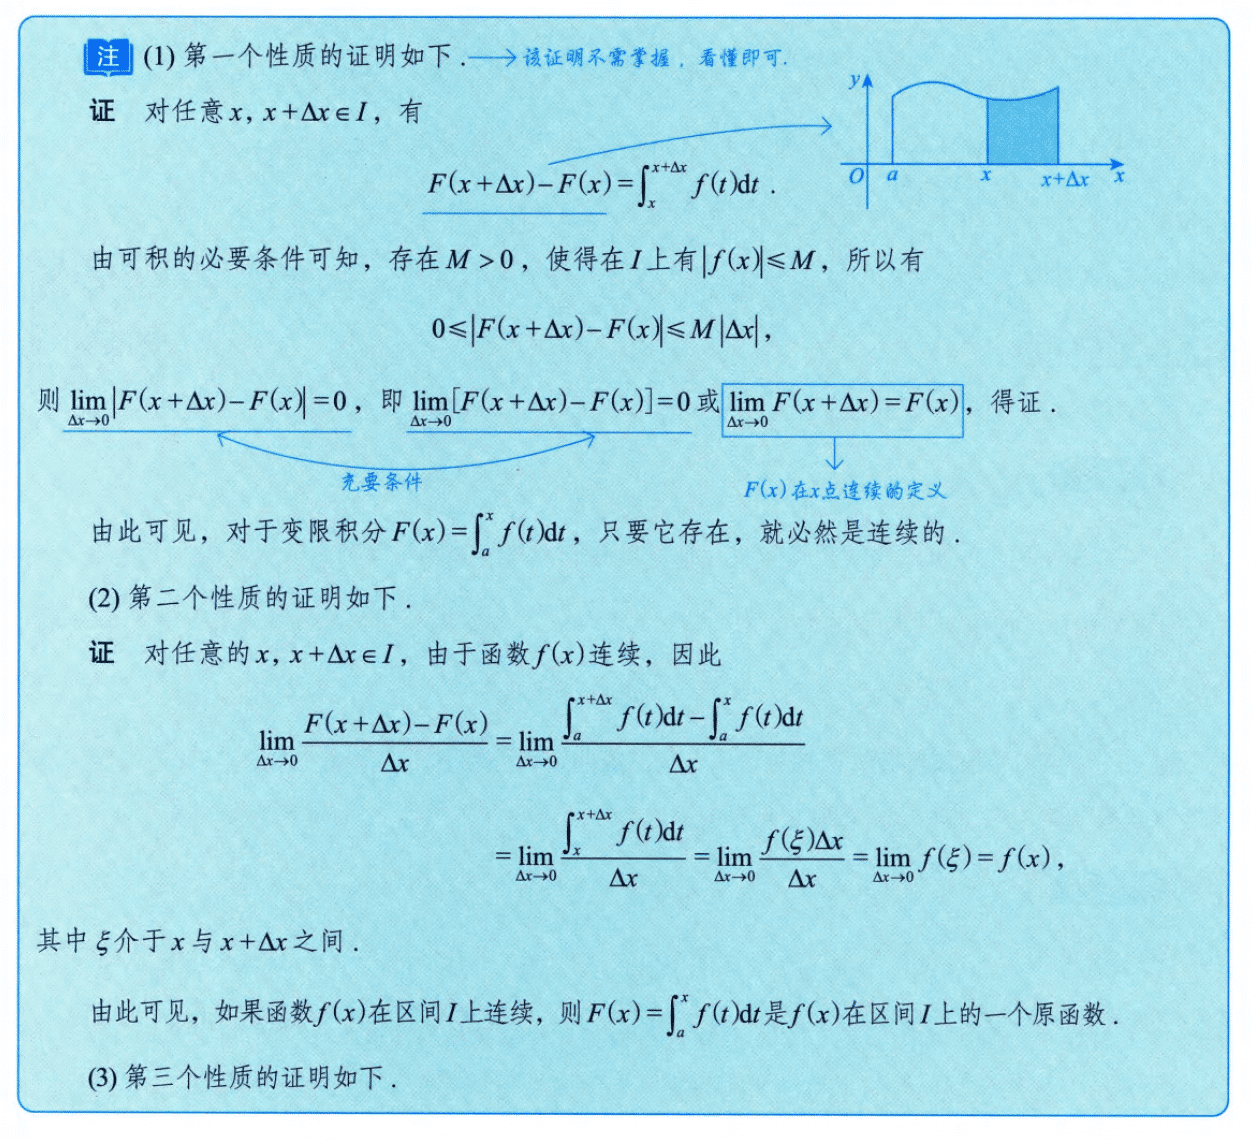 注 (1) 第一个性质的证明如下. → 该证明不需掌握，看懂即可.
证 对任意 x, x+Δx∈I，有
y
O a x x+Δx x
F(x+Δx)−F(x)=∫_x^{x+Δx} f(t)dt .
由可积的必要条件可知，存在 M>0，使得在 I 上有|f(x)|≤M，所以有
0≤|F(x+Δx)−F(x)|≤M|Δx|，
则 lim_{Δx→0}|F(x+Δx)−F(x)|=0，即 lim_{Δx→0}[F(x+Δx)−F(x)]=0 或 lim_{Δx→0} F(x+Δx)=F(x)，得证.
充要条件
F(x)在x点连续的定义
由此可见，对于变限积分 F(x)=∫_a^x f(t)dt，只要它存在，就必然是连续的.
(2) 第二个性质的证明如下.
证 对任意的 x, x+Δx∈I，由于函数 f(x)连续，因此
lim_{Δx→0} (F(x+Δx)−F(x))/Δx = lim_{Δx→0} (∫_a^{x+Δx} f(t)dt−∫_a^x f(t)dt)/Δx
= lim_{Δx→0} (∫_x^{x+Δx} f(t)dt)/Δx = lim_{Δx→0} (f(ξ)Δx)/Δx = lim_{Δx→0} f(ξ)=f(x)，
其中 ξ介于 x 与 x+Δx 之间.
由此可见，如果函数 f(x)在区间 I 上连续，则 F(x)=∫_a^x f(t)dt是f(x)在区间 I 上的一个原函数.
(3) 第三个性质的证明如下.